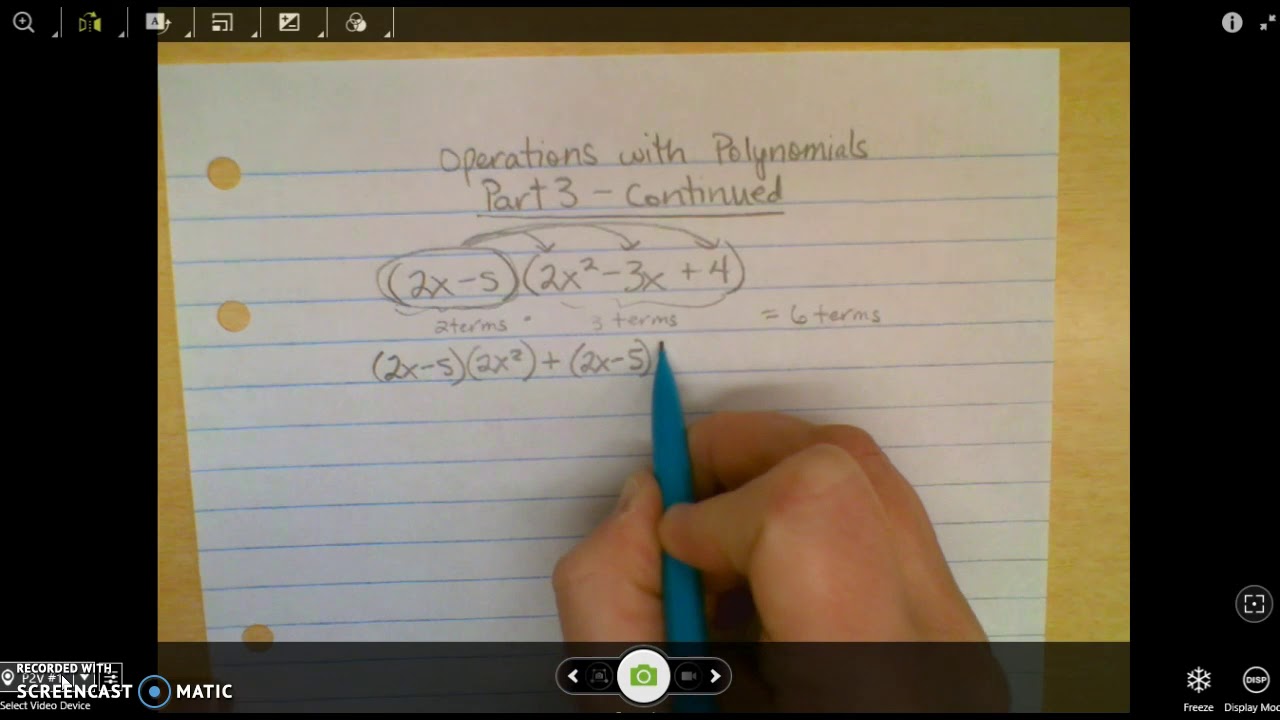 Operations with Polynomials
Part 3 - Continued
(2x-5)(2x²-3x+4)
2 terms · 3 terms = 6 terms
(2x-5)(2x²)+(2x-5)
RECORDED WITH
SCREENCAST MATIC
Select Video Device
Freeze
DISP